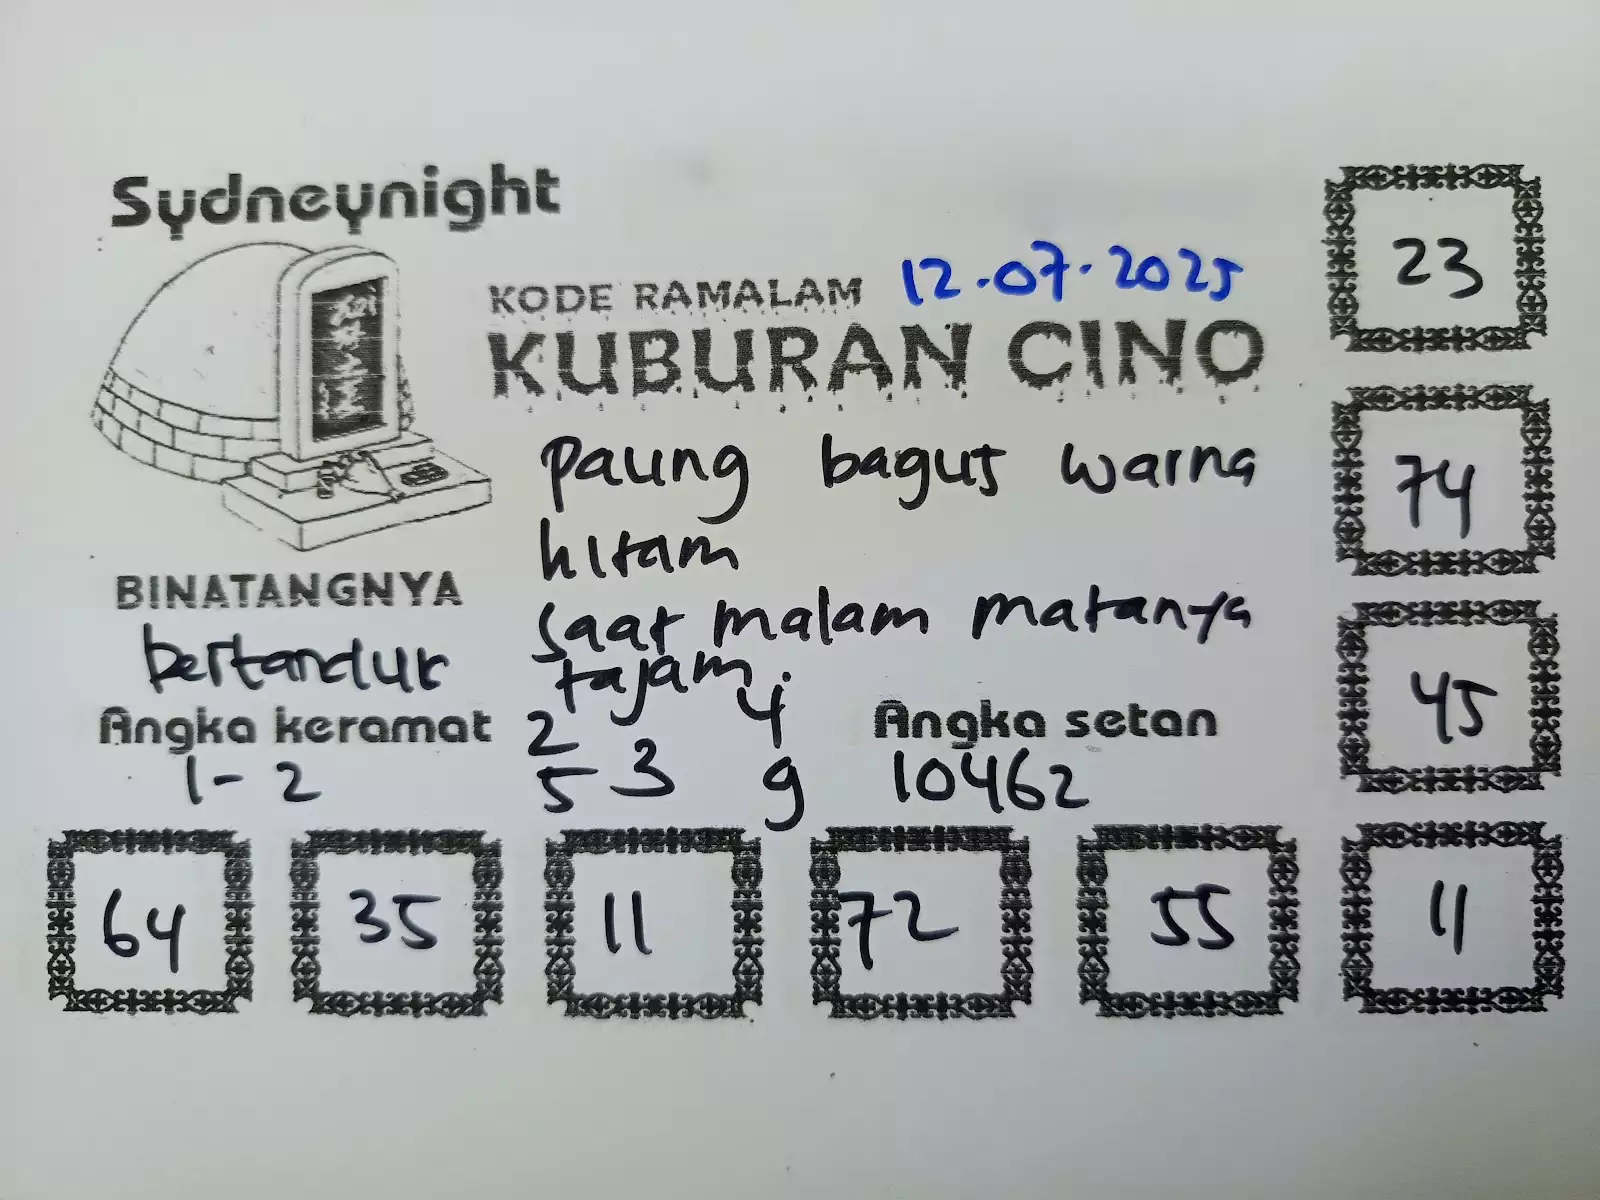 Sydneynight
KODE RAMALAM 12.07.2025
KUBURAN CINO
paung bagus warna
hitam
saat malam matanya
tajam.
BINATANGNYA
bertanduk
Angka keramat
1-2
2 4
5 3 9
Angka setan
10462
23
74
45
64 35 11 72 55 11